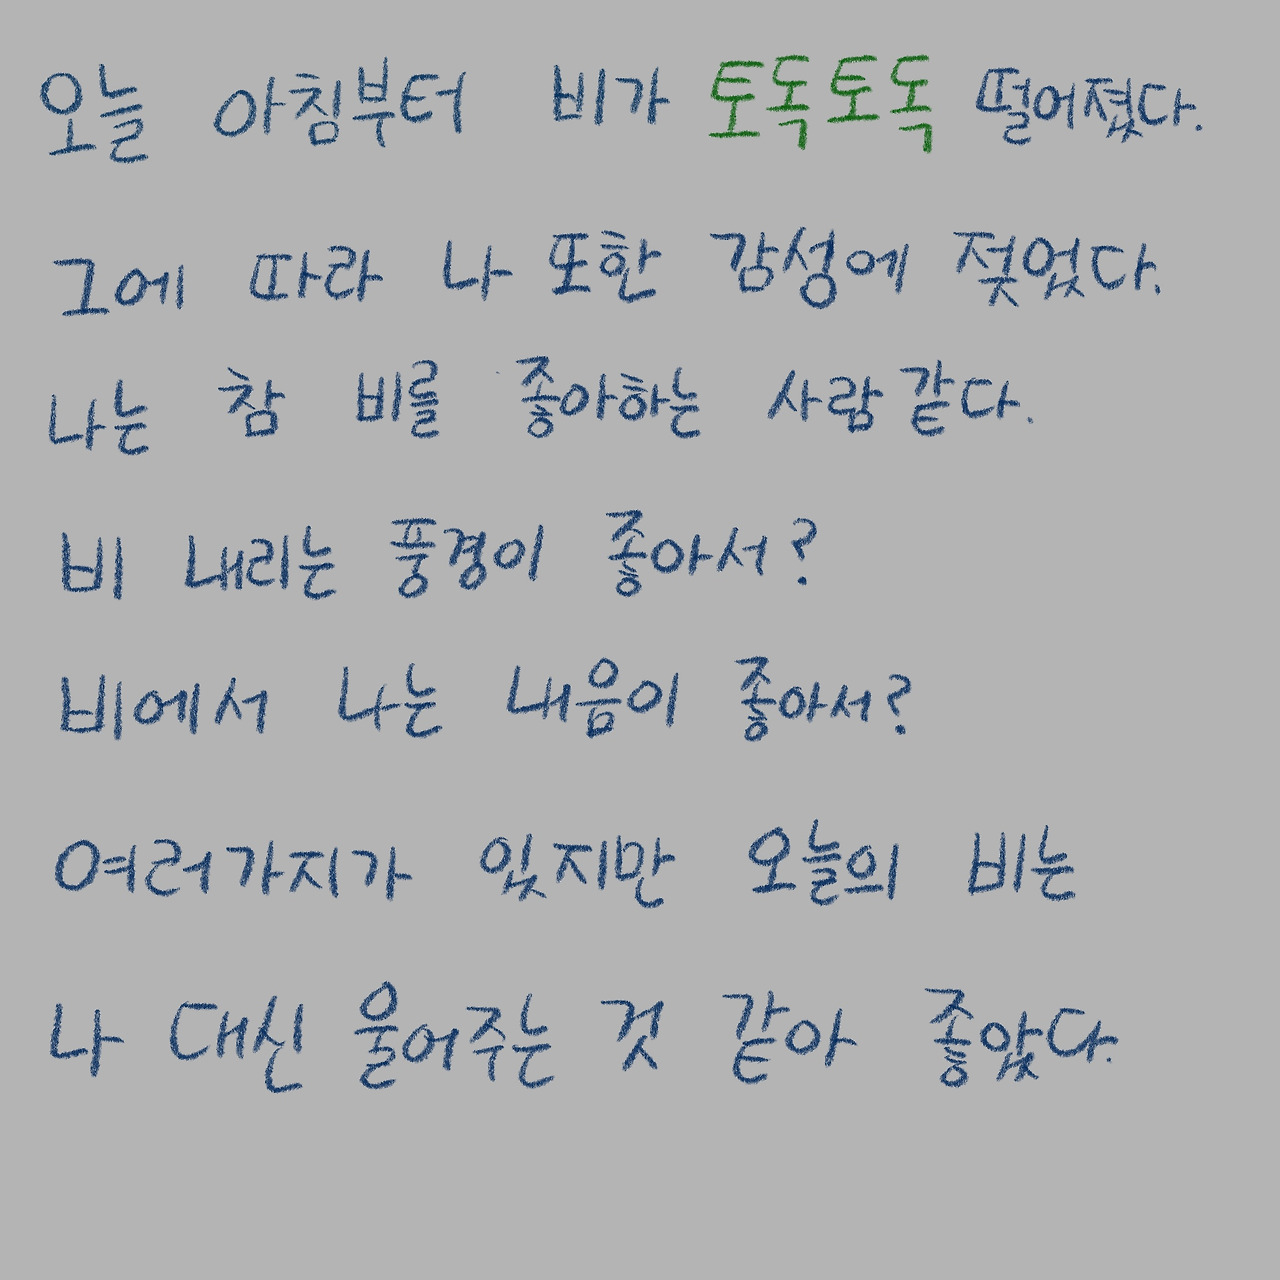 오늘 아침부터 비가 토독토독 떨어졌다.
그에 따라 나 또한 감성에 젖었다.
나는 참 비를 좋아하는 사람 같다.
비 내리는 풍경이 좋아서?
비에서 나는 내음이 좋아서?
여러가지가 있지만 오늘의 비는
나 대신 울어주는 것 같아 좋았다.